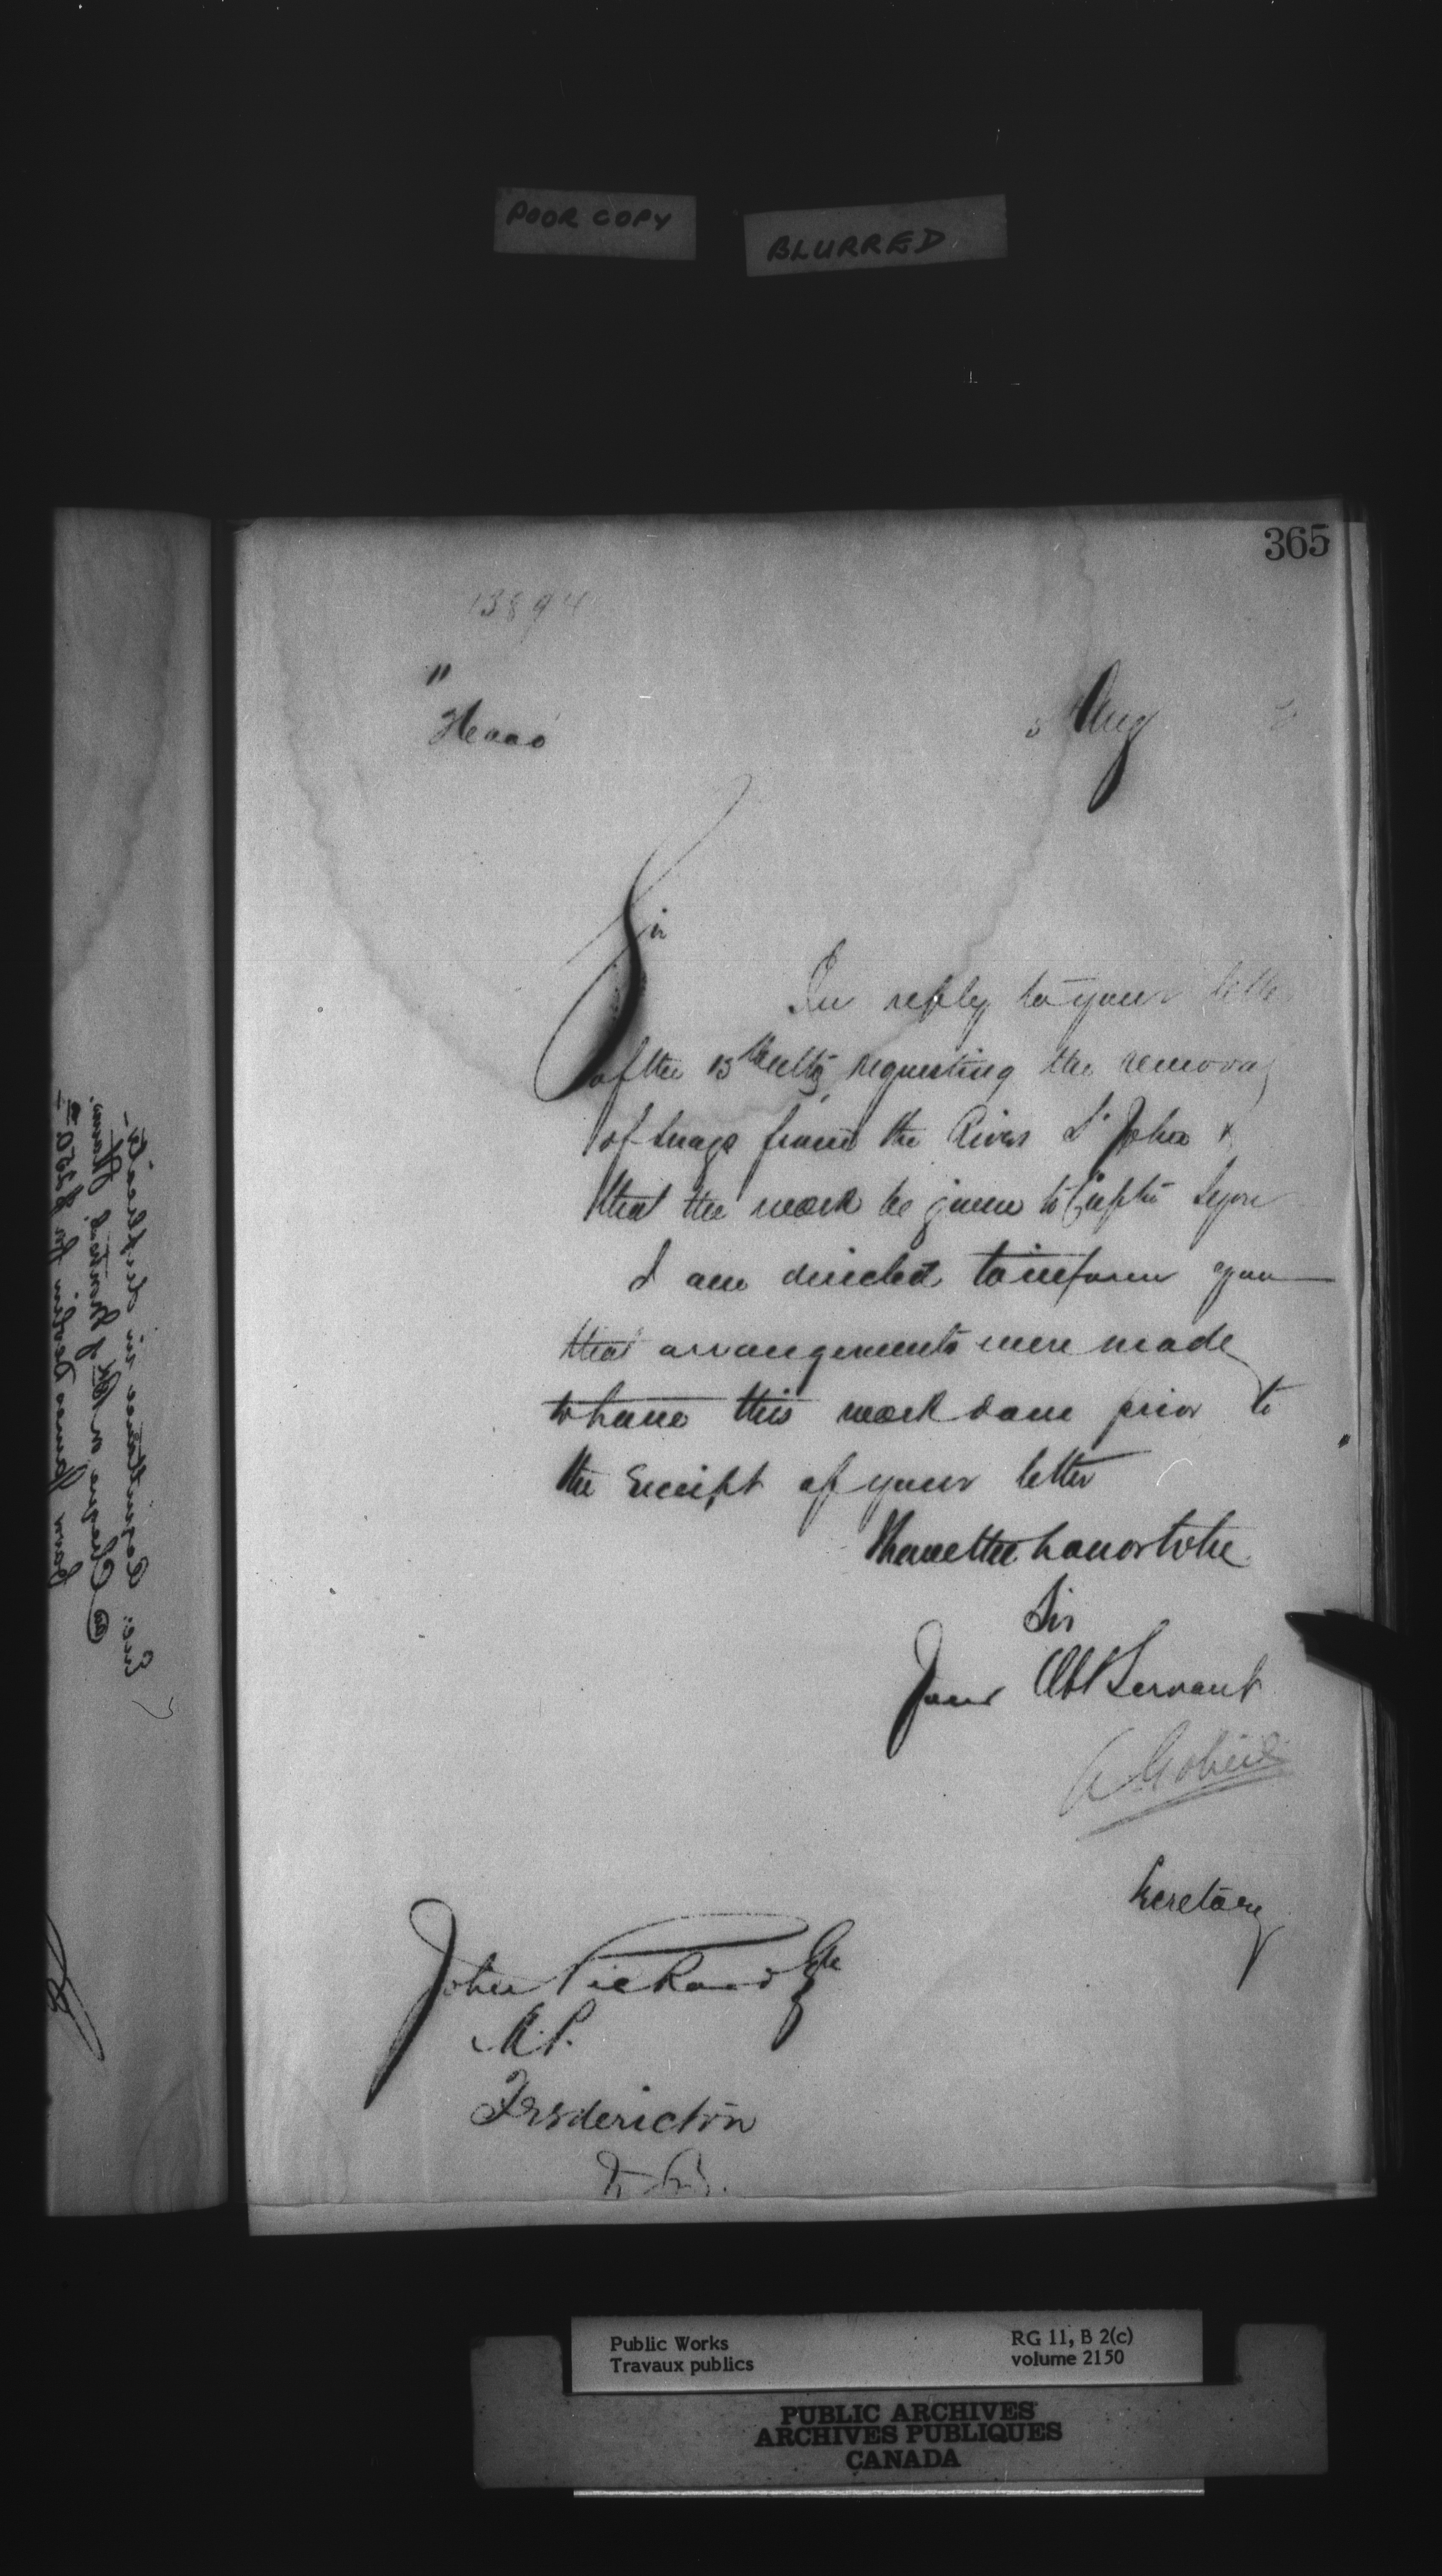 POOR COPY
BLURRED
365
13894
"
5 Aug
Sir
In reply to your lette
of the 13th ulto requesting the removal
of snags from the River St John &
that the work be given to Captn
I am directed to inform you
that arrangements were made
to have this work done prior to
the receipt of your letter
I have the honor to be
Sir
Your Obt Servant
A Gobeil
Secretary
John Pickard Esqe
M.P.
Fredericton
N.B.
Public Works
Travaux publics
RG 11, B 2(c)
volume 2150
PUBLIC ARCHIVES
ARCHIVES PUBLIQUES
CANADA